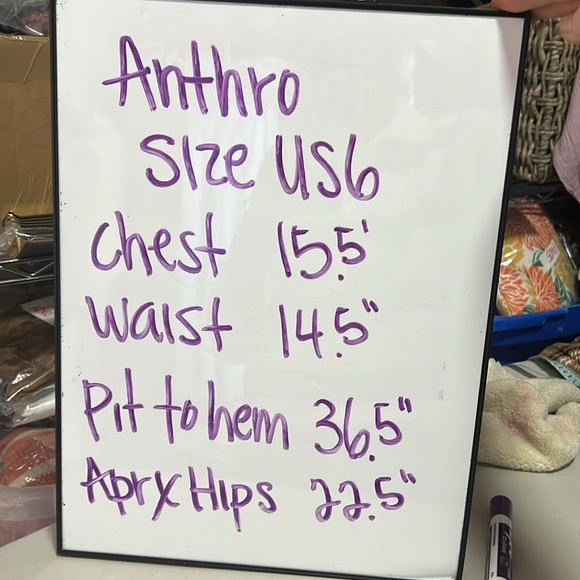 Anthro
Size US6
Chest 15.5'
Waist 14.5"
Pit to hem 36.5"
Aprx Hips 22.5"